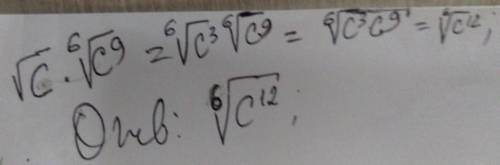 √c · ⁶√c⁹ = ⁶√c³ ⁶√c⁹ = ⁶√c³c⁹ = ⁶√c¹²;
Отв: ⁶√c¹²;